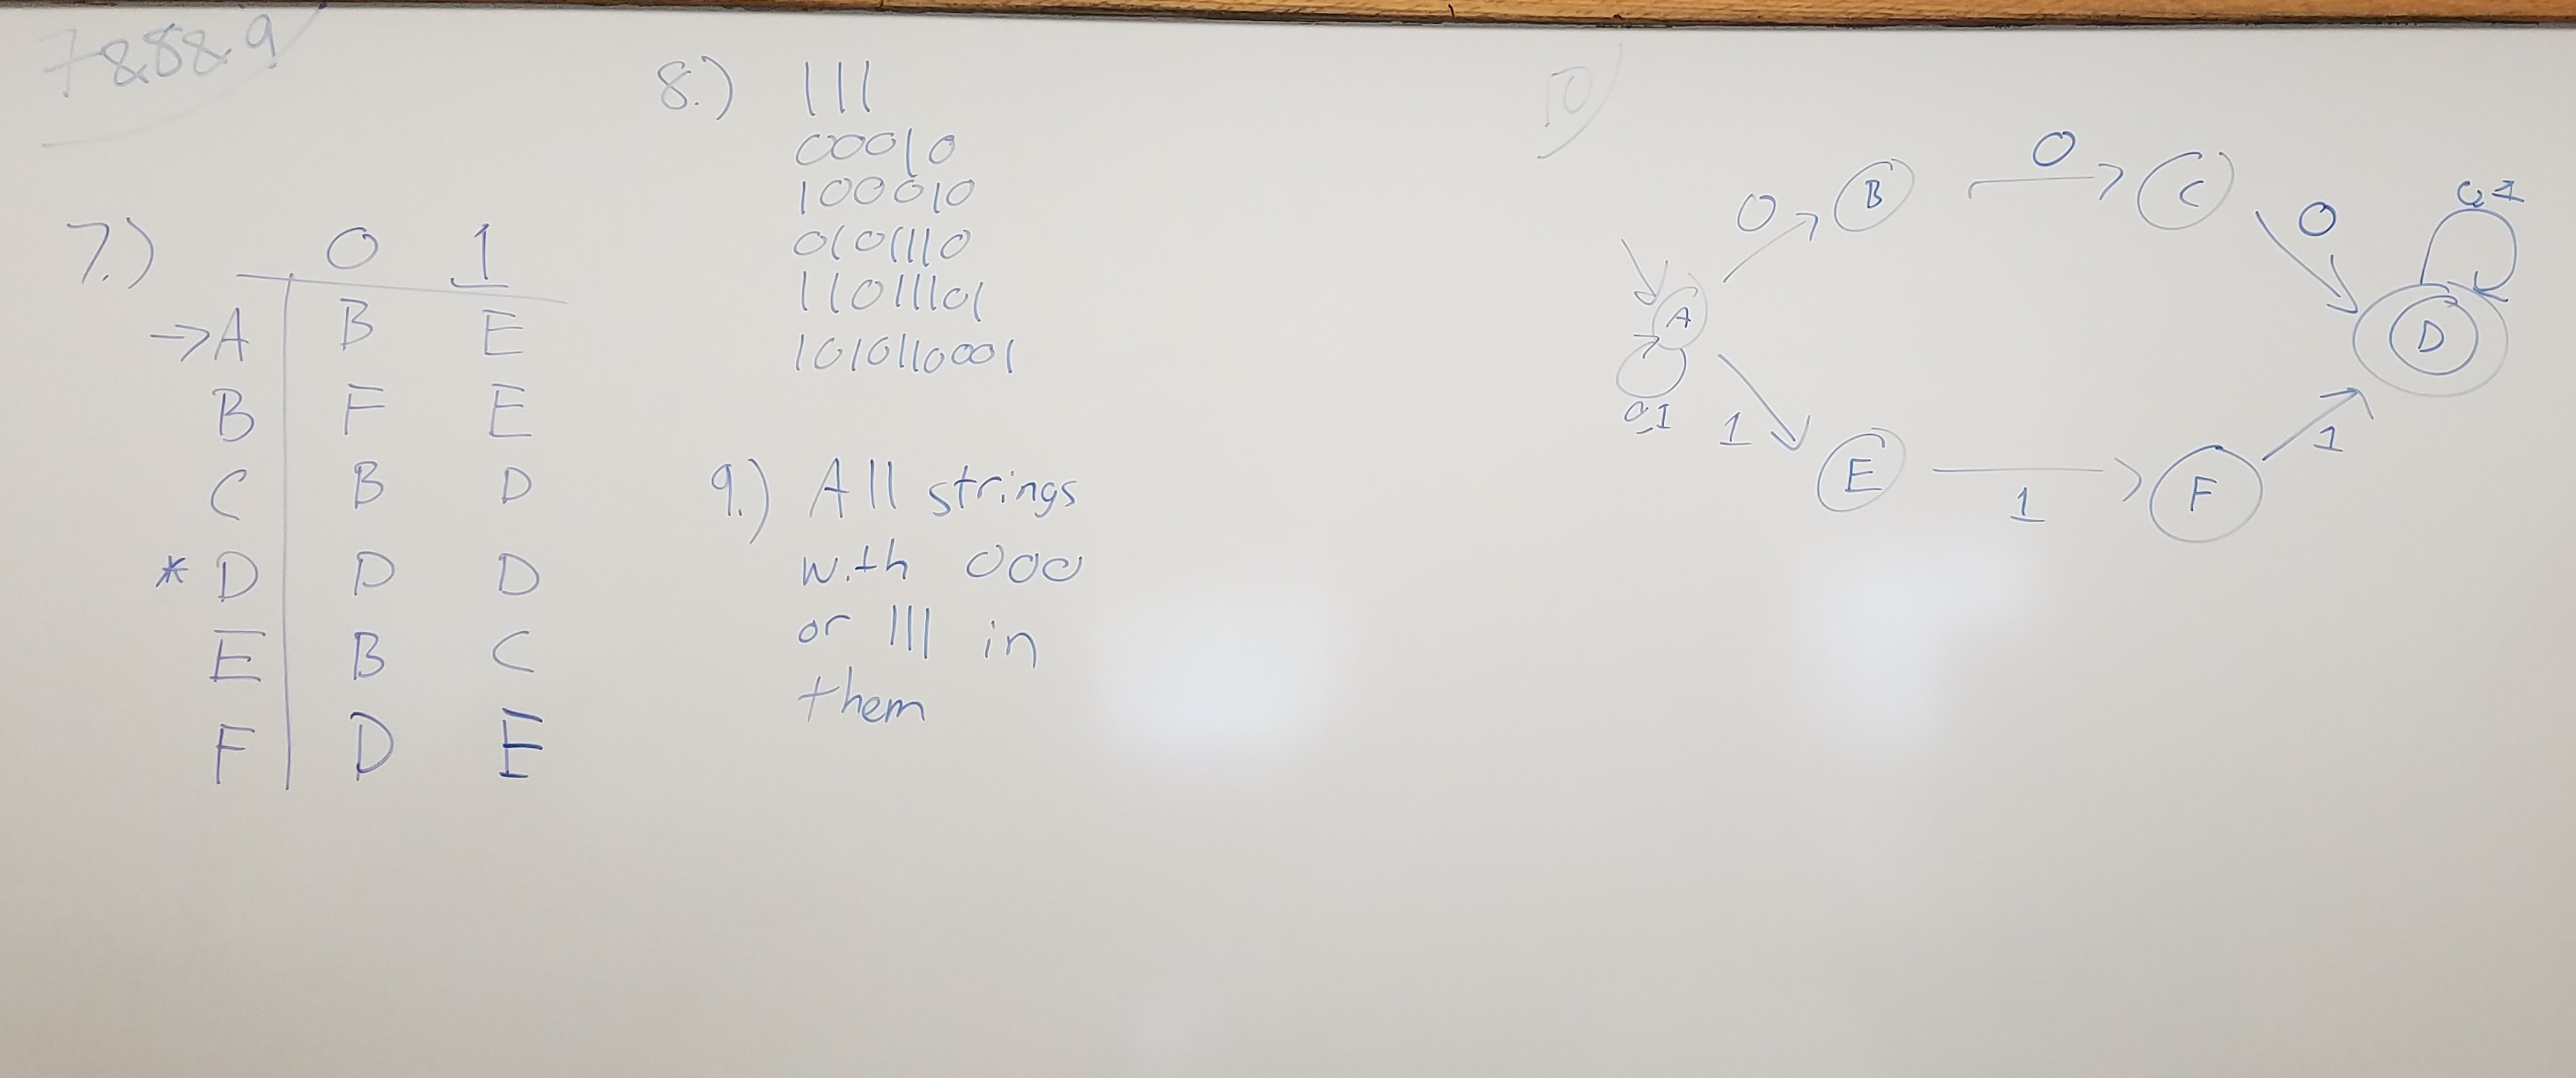 7&8&9
7.)
0 1
→A B E
B F E
C B D
* D D D
E B C
F D E
8.) 111
00010
100010
0101110
11011101
1010110001
9.) All strings
with 000
or 111 in
them
10
0
0 B C 0 0,1
A D
0,1 1 E 1 F 1